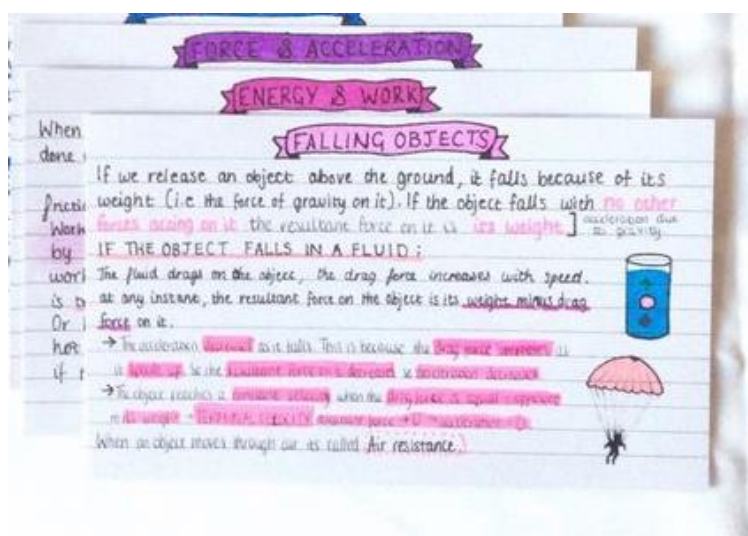 FORCE & ACCELERATION
ENERGY & WORK
When
done
by
is
Or
if
FALLING OBJECTS
If we release an object above the ground, it falls because of its
weight (i.e. the force of gravity on it). If the object falls with no other
forces acing on it the resultant force on it is its weight ] acceleration due
to gravity
IF THE OBJECT FALLS IN A FLUID:
The fluid drags on the object, the drag force increases with speed.
at any instant, the resultant force on the object is its weight minus drag
force on it.
→ The acceleration decreases as it falls. This is because the drag force increases as
it speeds up. So the resultant force on it decreases so acceleration decreases
→ The object reaches a constant velocity when the drag force is equal & opposite
to its weight - TERMINAL VELOCITY resultant force = 0 acceleration = 0
When an object moves through air its called Air resistance.